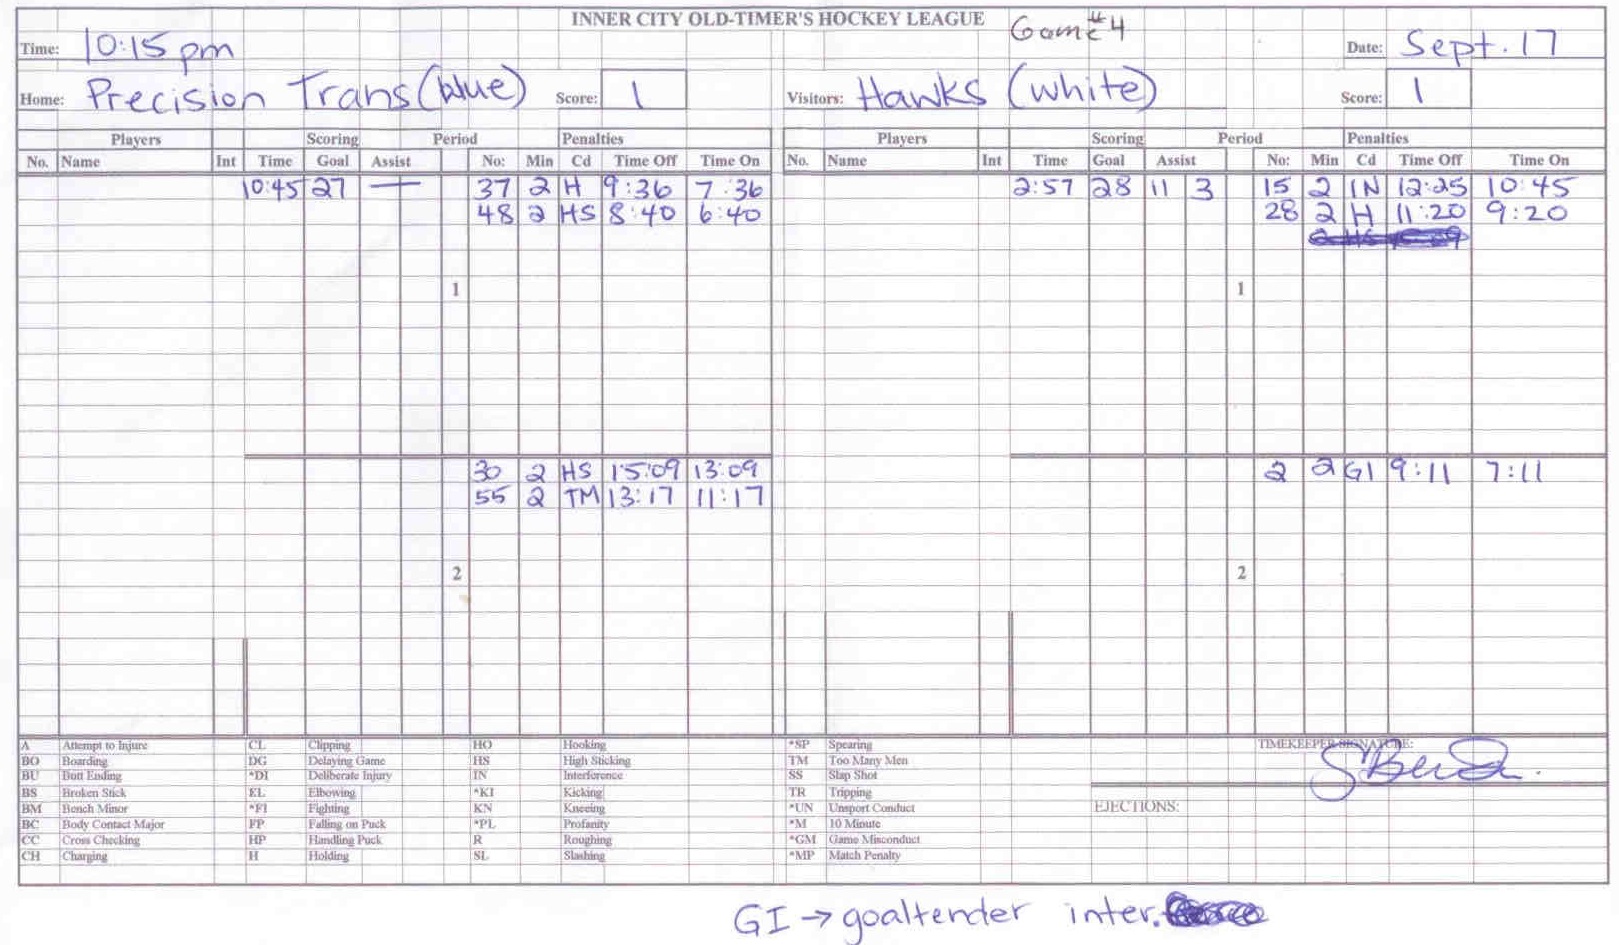 INNER CITY OLD-TIMER'S HOCKEY LEAGUE Game #4
Time: 10:15 pm Date: Sept. 17
Home: Precision Trans (blue) Score: 1 Visitors: Hawks (white) Score: 1
Players Scoring Period Penalties Players Scoring Period Penalties
No. Name Int Time Goal Assist No: Min Cd Time Off Time On No. Name Int Time Goal Assist No: Min Cd Time Off Time On
10:45 27 — 37 2 H 9:36 7:36 2:57 28 11 3 15 2 IN 12:25 10:45
48 2 HS 8:40 6:40 28 2 H 11:20 9:20
1 1
30 2 HS 15:09 13:09 2 2 GI 9:11 7:11
55 2 TM 13:17 11:17
2 2
A Attempt to Injure CL Clipping HO Hooking *SP Spearing TIMEKEEPER SIGNATURE:
BO Boarding DG Delaying Game HS High Sticking TM Too Many Men
BU Butt Ending *DI Deliberate Injury IN Interference SS Slap Shot
BS Broken Stick EL Elbowing *KI Kicking TR Tripping
BM Bench Minor *FI Fighting KN Kneeing *UN Unsport Conduct EJECTIONS:
BC Body Contact Major FP Falling on Puck *PL Profanity *M 10 Minute
CC Cross Checking HP Handling Puck R Roughing *GM Game Misconduct
CH Charging H Holding SL Slashing *MP Match Penalty
GI → goaltender inter.